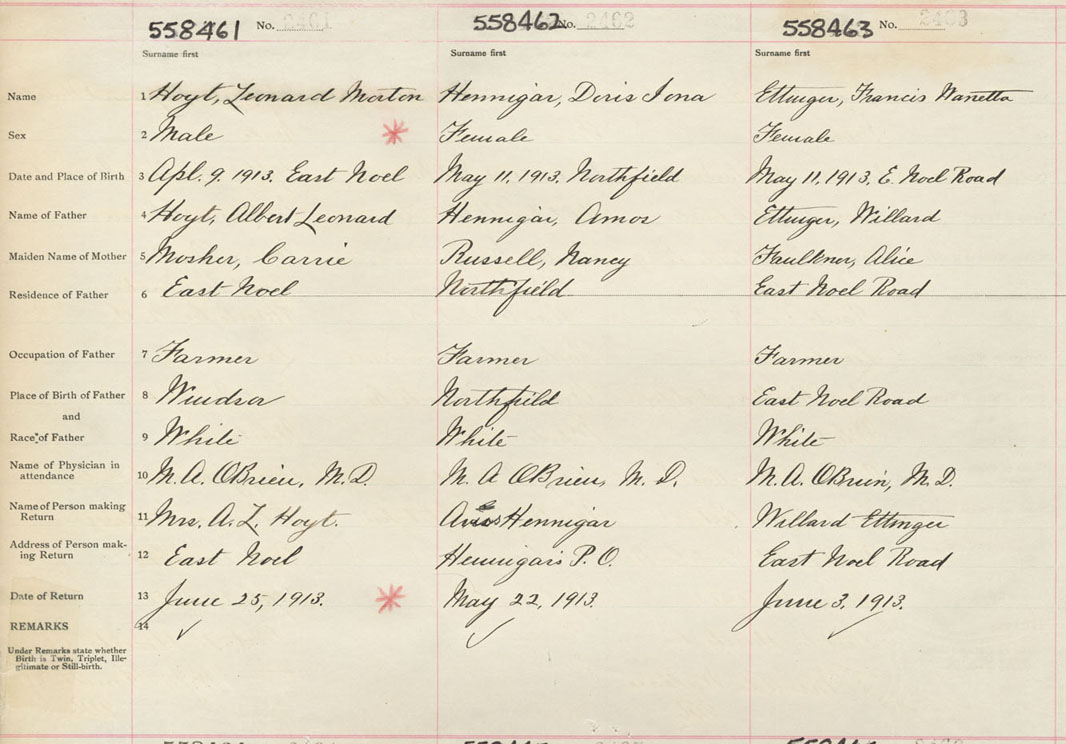 558461 No. 2461 558462 No. 2462 558463 No. 2463
Surname first Surname first Surname first
Name 1 Hoyt, Leonard Morton Hennigar, Doris Iona Ettinger, Francis Wanetta
Sex 2 Male Female Female
Date and Place of Birth 3 Apl. 9. 1913. East Noel May 11, 1913. Northfield May 11, 1913, E. Noel Road
Name of Father 4 Hoyt, Albert Leonard Hennigar, Amos Ettinger, Willard
Maiden Name of Mother 5 Mosher, Carrie Russell, Nancy Faulkner, Alice
Residence of Father 6 East Noel Northfield East Noel Road
Occupation of Father 7 Farmer Farmer Farmer
Place of Birth of Father 8 Windsor Northfield East Noel Road
and
Race of Father 9 White White White
Name of Physician in
attendance 10 M. A. OBrien, M. D. M. A OBrien, M. D. M. A. OBrien, M. D.
Name of Person making
Return 11 Mrs. A. L. Hoyt. Hennigar Willard Ettinger
Address of Person mak-
ing Return 12 East Noel Hennigars P. O. East Noel Road
Date of Return 13 June 25, 1913. May 22, 1913. June 3, 1913.
REMARKS 14
Under Remarks state whether
Birth is Twin, Triplet, Ille-
gitimate or Still-birth.